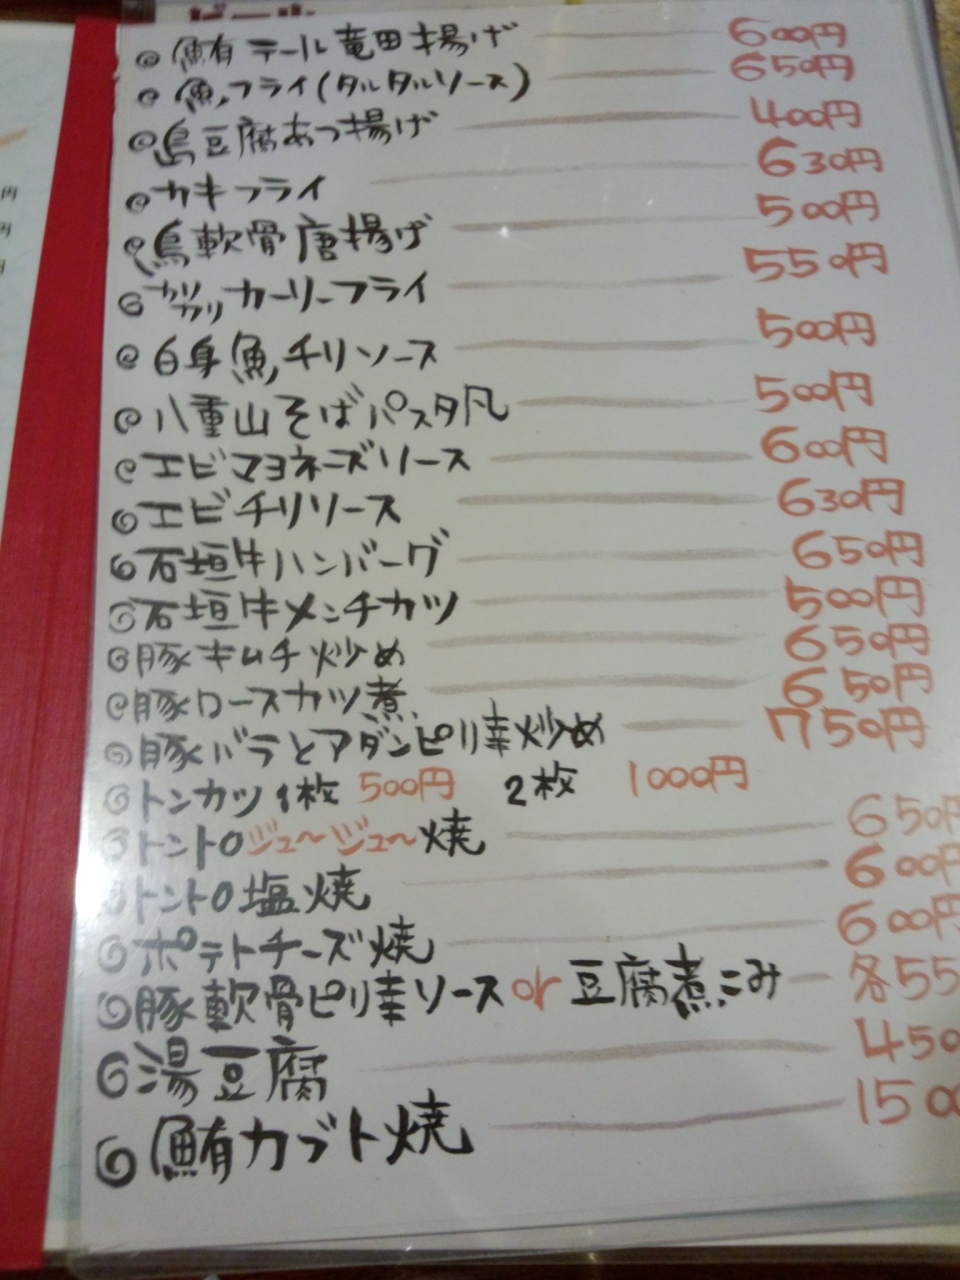 ◎鮪テール竜田揚げ 600円
◎魚フライ(タルタルソース) 650円
◎島豆腐あつ揚げ 400円
◎カキフライ 630円
◎鳥軟骨唐揚げ 500円
◎カリカリカーリーフライ 550円
◎白身魚チリソース 500円
◎八重山そばパスタ風 500円
◎エビマヨネーズソース 600円
◎エビチリソース 630円
◎石垣牛ハンバーグ 650円
◎石垣牛メンチカツ 500円
◎豚キムチ炒め 650円
◎豚ロースカツ煮 650円
◎豚バラとアダンピリ辛炒め 750円
◎トンカツ1枚 500円 2枚 1000円
◎トントロジュ〜ジュ〜焼 650円
◎トントロ塩焼 600円
◎ポテトチーズ焼 600円
◎豚軟骨ピリ辛ソースor豆腐煮こみ 各55
◎湯豆腐 450
◎鮪カブト焼 1500